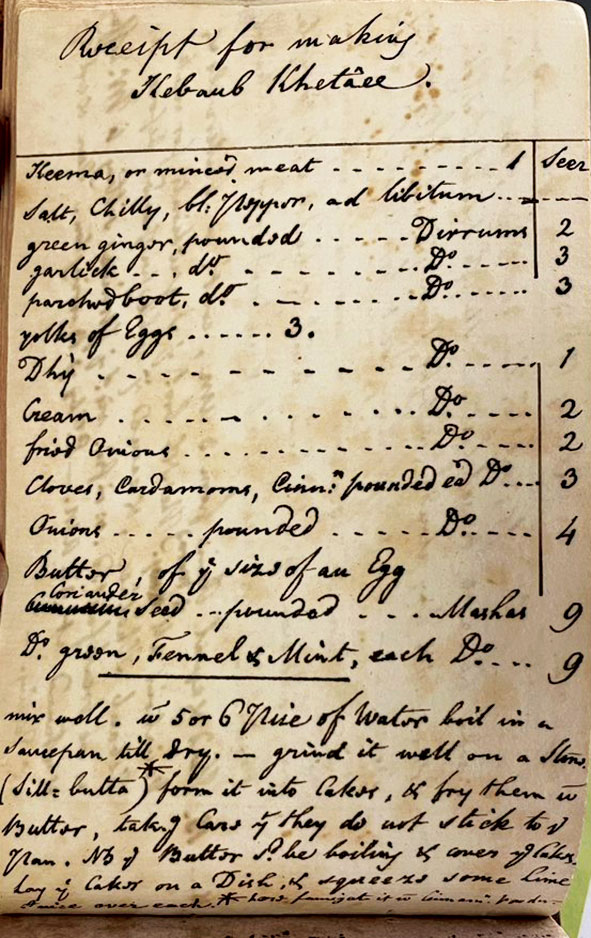 Receipt for making
Kebaub Khetâee.
Keema, or minced meat - - - - - - - - - 1 Seer
Salt, Chilly, bl: Pepper, ad libitum - - - - -
green ginger, pounded - - - - - Dirrums 2
garlick - - . do - - - - - - - - Do - - - - - 3
parched boot, do . - - - - - - Do - - - - - 3
yolks of Eggs - - - - - - 3.
Dhÿ - - - - - - - - - - Do - - - - - 1
Cream . . . . . . . . . . . . Do - - - - 2
fried Onions . . . . . . . . . . . . Do - - - - 2
Cloves, Cardamoms, Cinn:n pounded ea̅ Do - - - 3
Onions - - - - - pounded - - - - - - Do - - - - 4
Butter, of ye size of an Egg
Coriander
Seed - - pounded - - - - Mashas 9
Do green, Fennel & Mint, each Do - - - - 9
mix well. w 5 or 6 Pice of Water boil in a
saucepan till dry. — grind it well on a Stone
(Sill=butta)* form it into Cakes, & fry them w
Butter, takg Care yt they do not stick to ye
Pan. NB ye Butter sd. be boiling & cover ye Cakes.
Lay ye Cakes on a Dish, & squeeze some lime
Juice over each. * here fumigat it w Cinam: